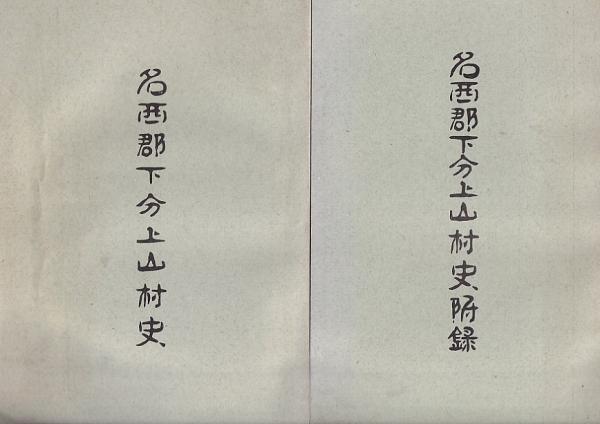 名西郡下分上山村史附録
名西郡下分上山村史